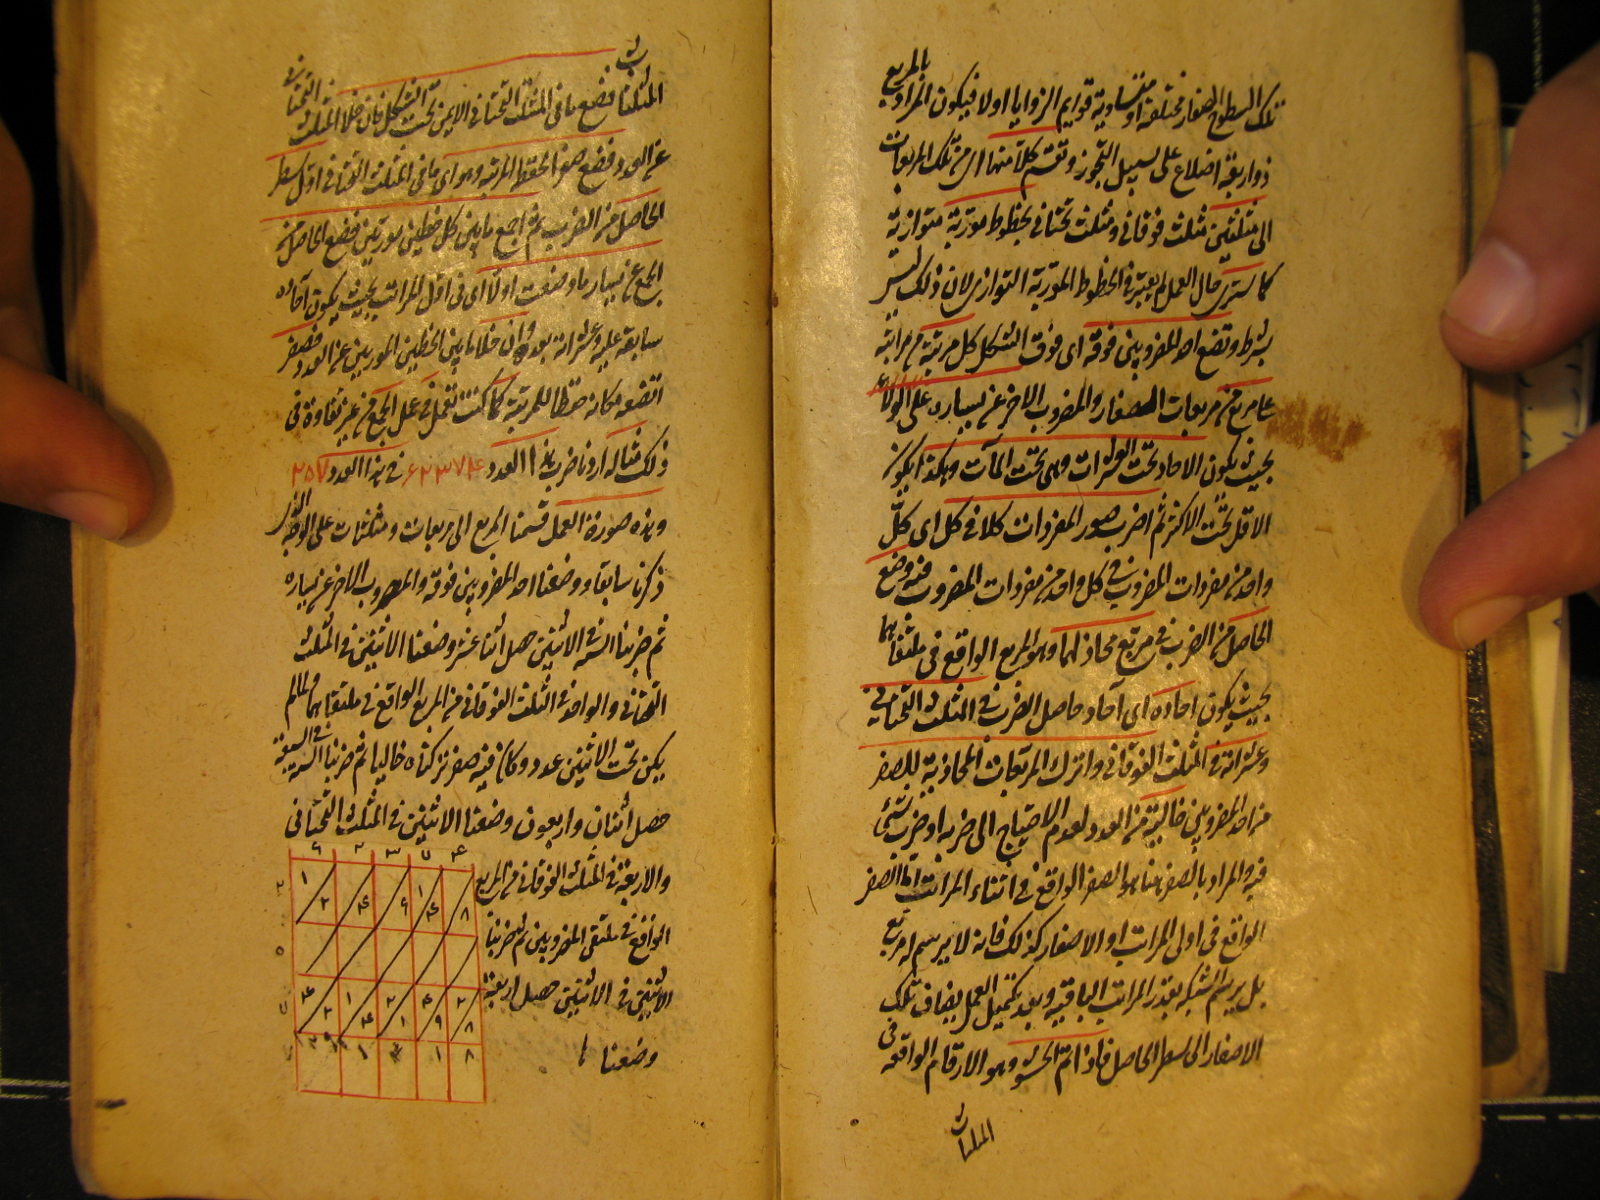 تلك السطوح الصغار مختلفة او متساوية قوايم الزوايا اولا فيكون المراد بالمربع
ذو اربعة اضلاع على سبيل التجوز وتقسم كلا منها اى من تلك المربعات
الى مثلثين مثلث فوقانى ومثلث تحتانى بخطوط موربة متوازية
كما سترى حال العمل لم يعتبر فى الخطوط الموربة التوازى لان ذلك ليس
بشرط وتضع احد المضروبين فوقه اى فوق الشكل كل مرتبة من مراتبه
على مربع من مربعات الصغار والمضروب الاخر عن يساره على الولاء
بحيث يكون الاحاد تحت العشرات وهى تحت المآت وهكذا يكون
الاقل تحت الاكثر ثم اضرب صور المفردات كلا فى كل اى كل
واحد من مفردات المضروب فى كل واحد من مفردات المضروب فيه وضع
الحاصل من الضرب فى مربع محاذ لهما وهو المربع الواقع فى ملتقاهما
بحيث يكون احاده اى آحاد حاصل الضرب فى المثلث التحتانى
وعشراته فى المثلث الفوقانى واترك المربعات المحاذية للصفر
من احد المضروبين خالية من العدد لعدم الاحتياج الى ضربه او ضرب شئ
فيه المراد بالصفر هنا هو الصفر الواقع فى اثناء المراتب اما الصفر
الواقع فى اولى المراتب او الاصفار كذلك فانه لا يرسم له مربع
بل يرسم الشبكه بقدر المراتب الباقية وبعد تكميل العمل يضاف تلك
الاصفار الى سطر الحاصل فاذا تم الحشو وهو الارقام الواقعه فى
المثلثات
المثلثات فضع ما فى المثلث التحتانى الايمن تحت الشكل فان خلا المثلث التحتانى
عن العدد فضع صفرا لحفظ المرتبه وهو اى ما فى المثلث التحتانى اول سطر
الحاصل من الضرب ثم اجمع ما بين كل خطين موربين فضع الحاصل من
الجمع عن يسار ما وضعت اولا اى فى اول المراتب بحيث يكون آحاده
سابقة عليه وعشراته بعده وان خلا ما بين الخطين الموربين عن العدد فصفر
اتضعه مكانه حفظا للمرتبة كما كنت تعمل فى عمل الجمع من غير تفاوة فى
ذلك مثاله اردنا ضرب هذا العدد ۶۲۳۷۴ فى هذا العدد ۲۰۷
وهذه صورة العمل قسمنا المربع الى مربعات ومثلثات على الوجه الذى
ذكرنا سابقا ووضعنا احد المضروبين فوقه والمضروب الاخر عن يساره
ثم ضربنا الستة فى الاثنين حصل اثنا عشر وضعنا الاثنين فى المثلث
التحتانى والواحد فى المثلث الفوقانى من المربع الواقع فى ملتقاهما ولما لم
يكن تحت الاثنين عدد وكان فيه صفر تركناه خاليا ثم ضربنا الستة فى السبعة
حصل اثنان واربعون وضعنا الاثنين فى المثلث التحتانى
والاربعة فى المثلث الفوقانى من المربع
الواقع فى ملتقى المضروبين ثم ضربنا
الاثنين فى الاثنين حصل اربعة
وضعنا
۶ ۲ ۳ ۷ ۴
۲ ۱ ۲ ۴ ۶ ۱ ۴ ۸
۰
۷ ۴ ۲ ۱ ۴ ۲ ۱ ۴ ۹ ۲ ۸